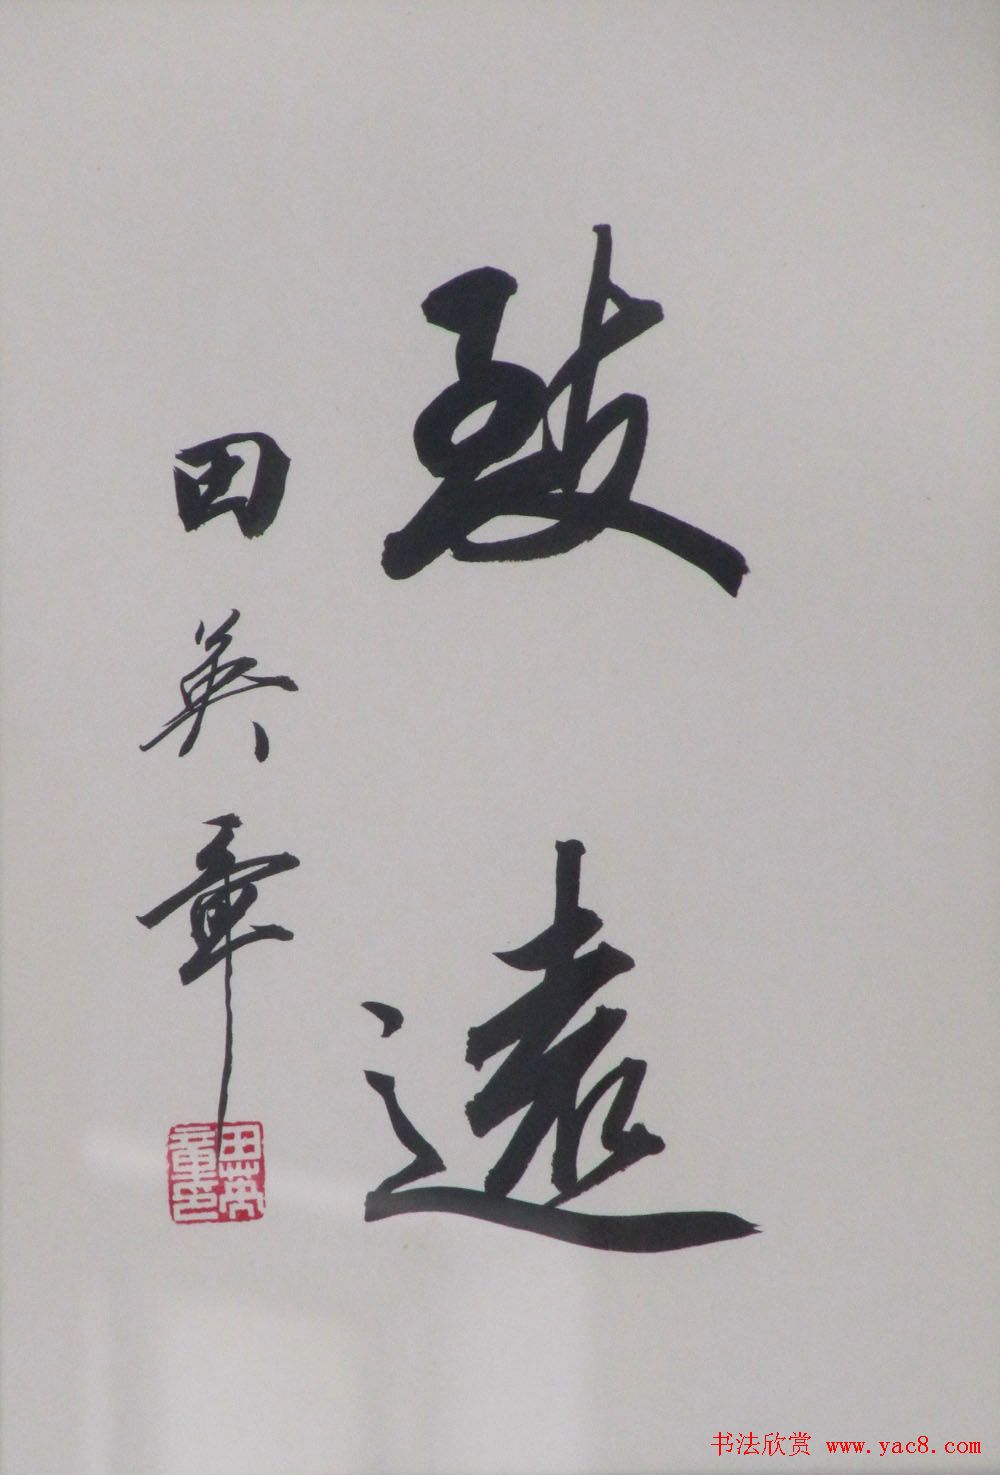 致遠
田英章
田英章印
书法欣赏 www.yac8.com